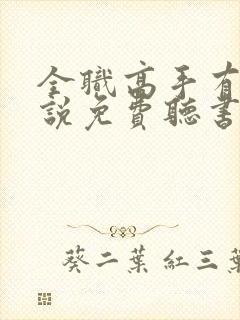 全職高手有
說免費聽書
葵二葉紅三葉